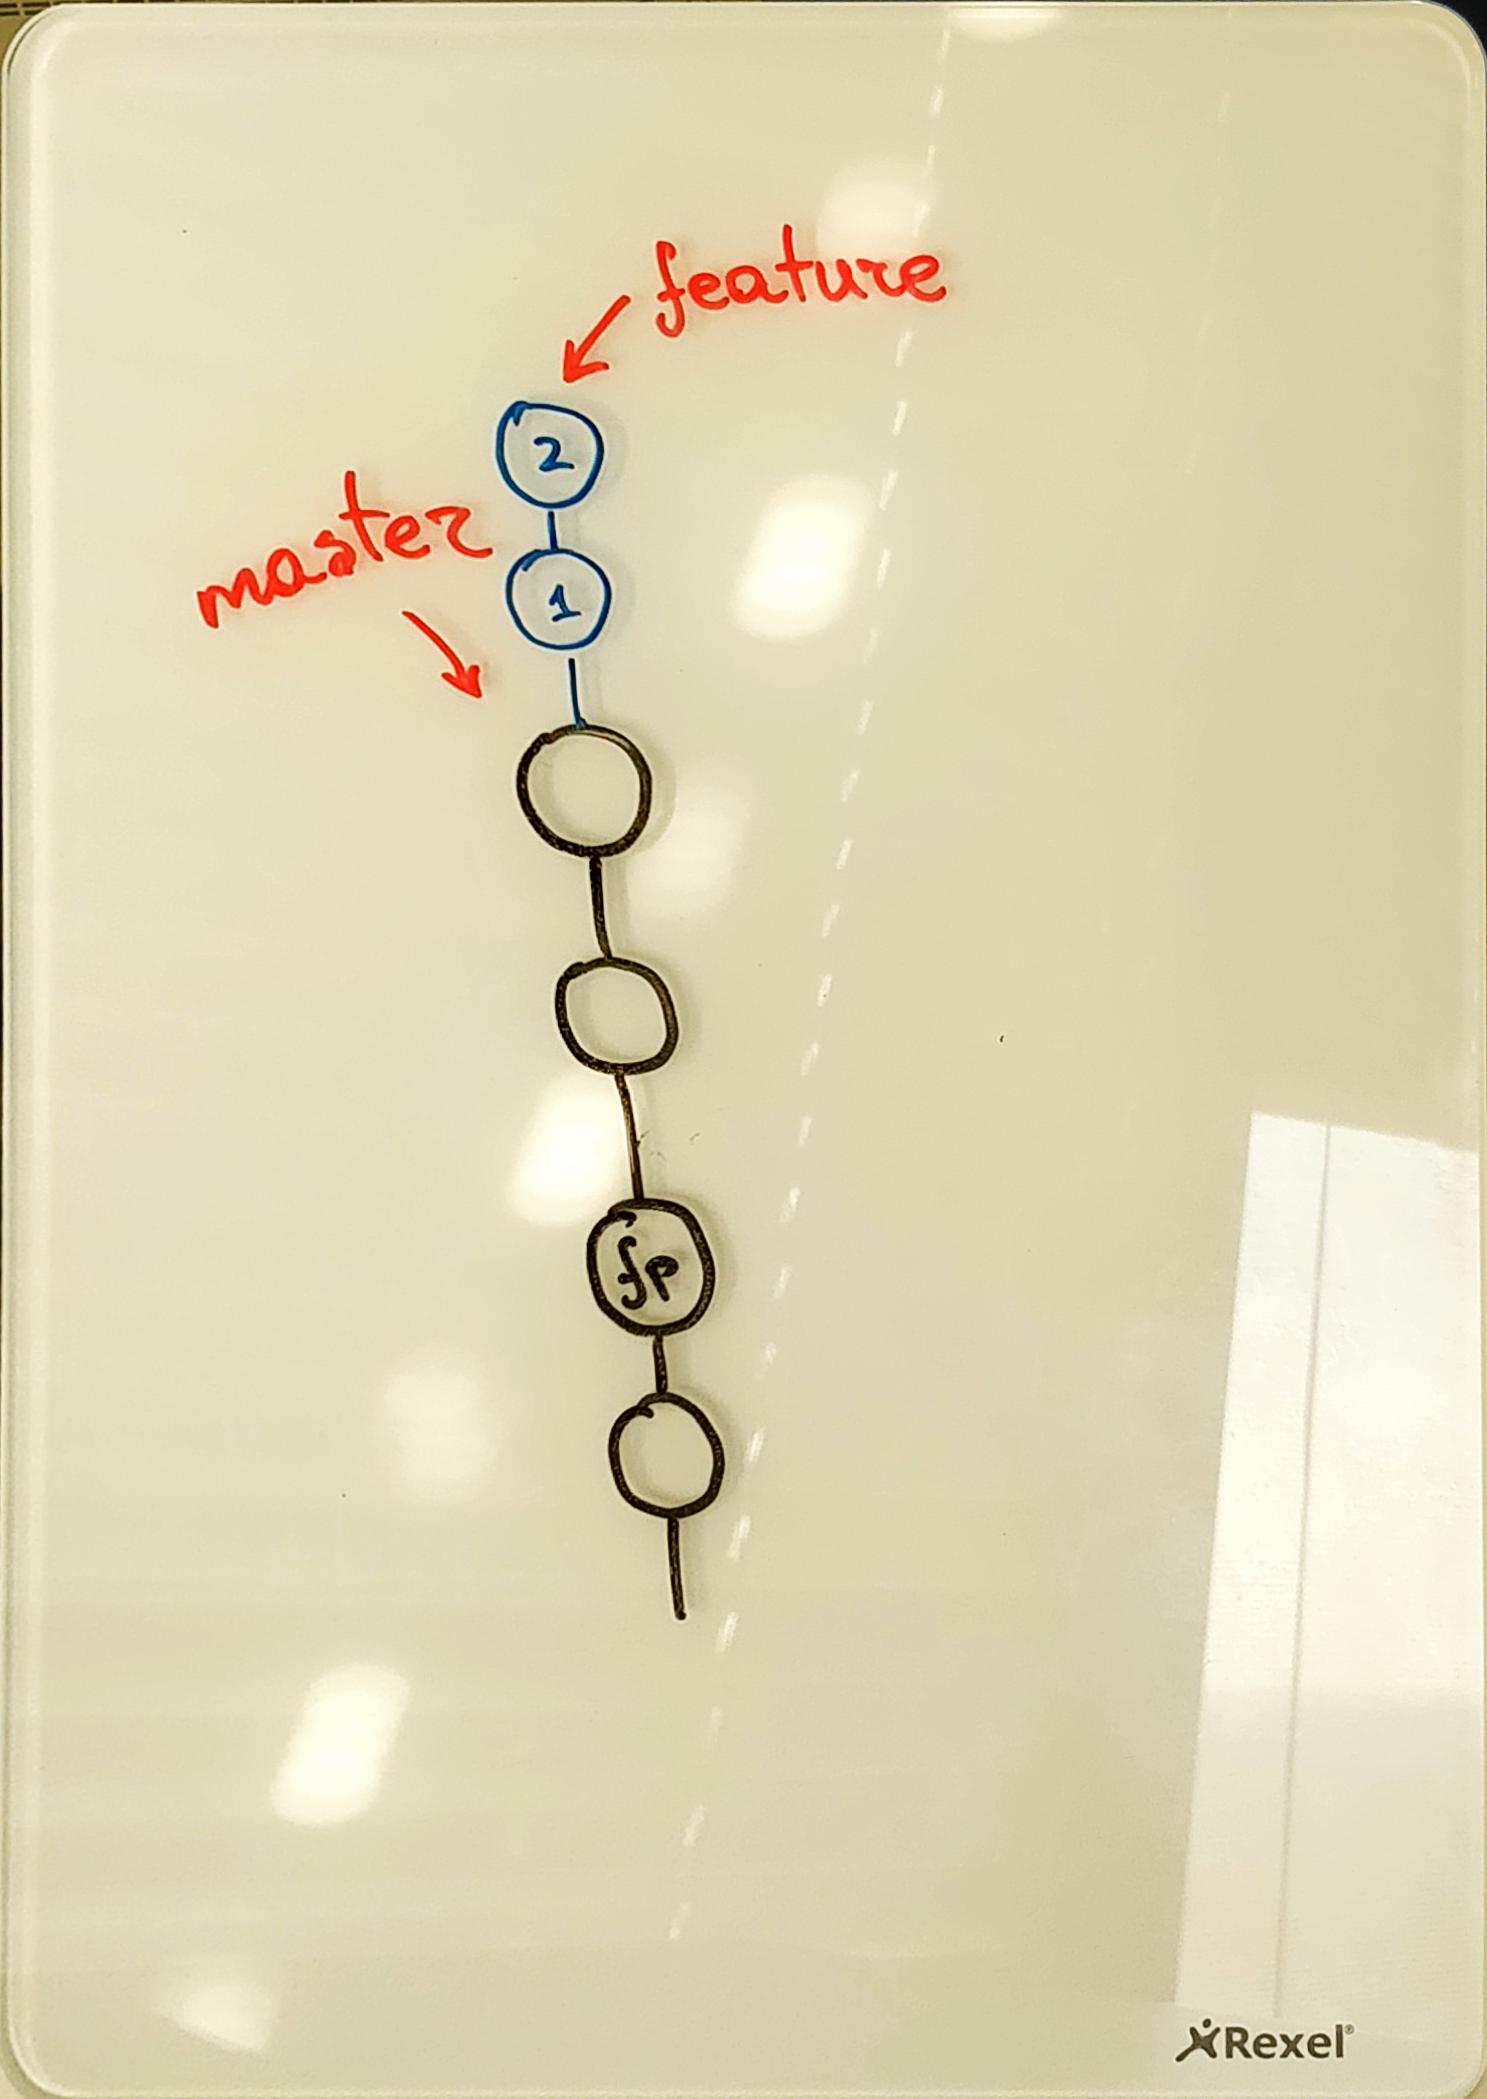 feature
2
master
1
fp
Rexel®